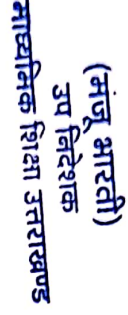 (मंजू भारती)
उप निदेशक
माध्यमिक शिक्षा उत्तराखण्ड